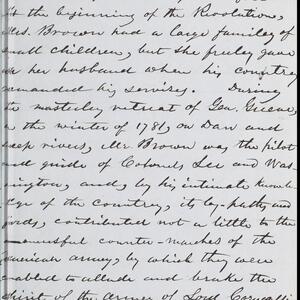 At the beginning of the Revolution,
Mrs. Brown had a large familey of
small children, but she freeley gave
up her husband when his country
demanded his services. During
the masterley retreat of Gen. Greene,
in the winter of 1781, on Dan and
Deep rivers, Mr Brown was the pilot
and guide of Colonels Lee and Was-
hington, and, by his intimate knowl-
edge of the country, its by-paths, and
fords, contributed not a little to the
successful counter-marches of the
American army, by which they were
enabled to allude and brake the
spirit of the armes of Lord Cornwallis